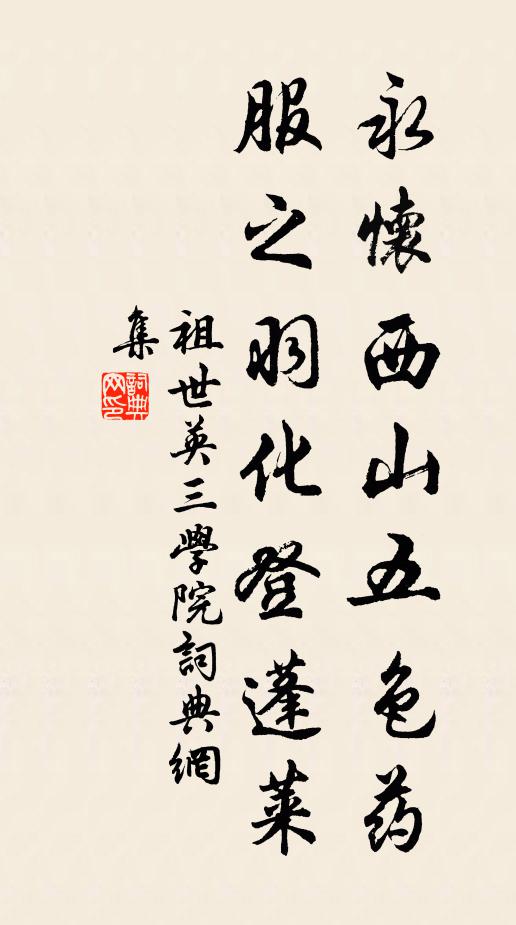 永懷西山五色药
服之羽化登蓬萊
祖世英三學院詞典網
集
詞典
网印